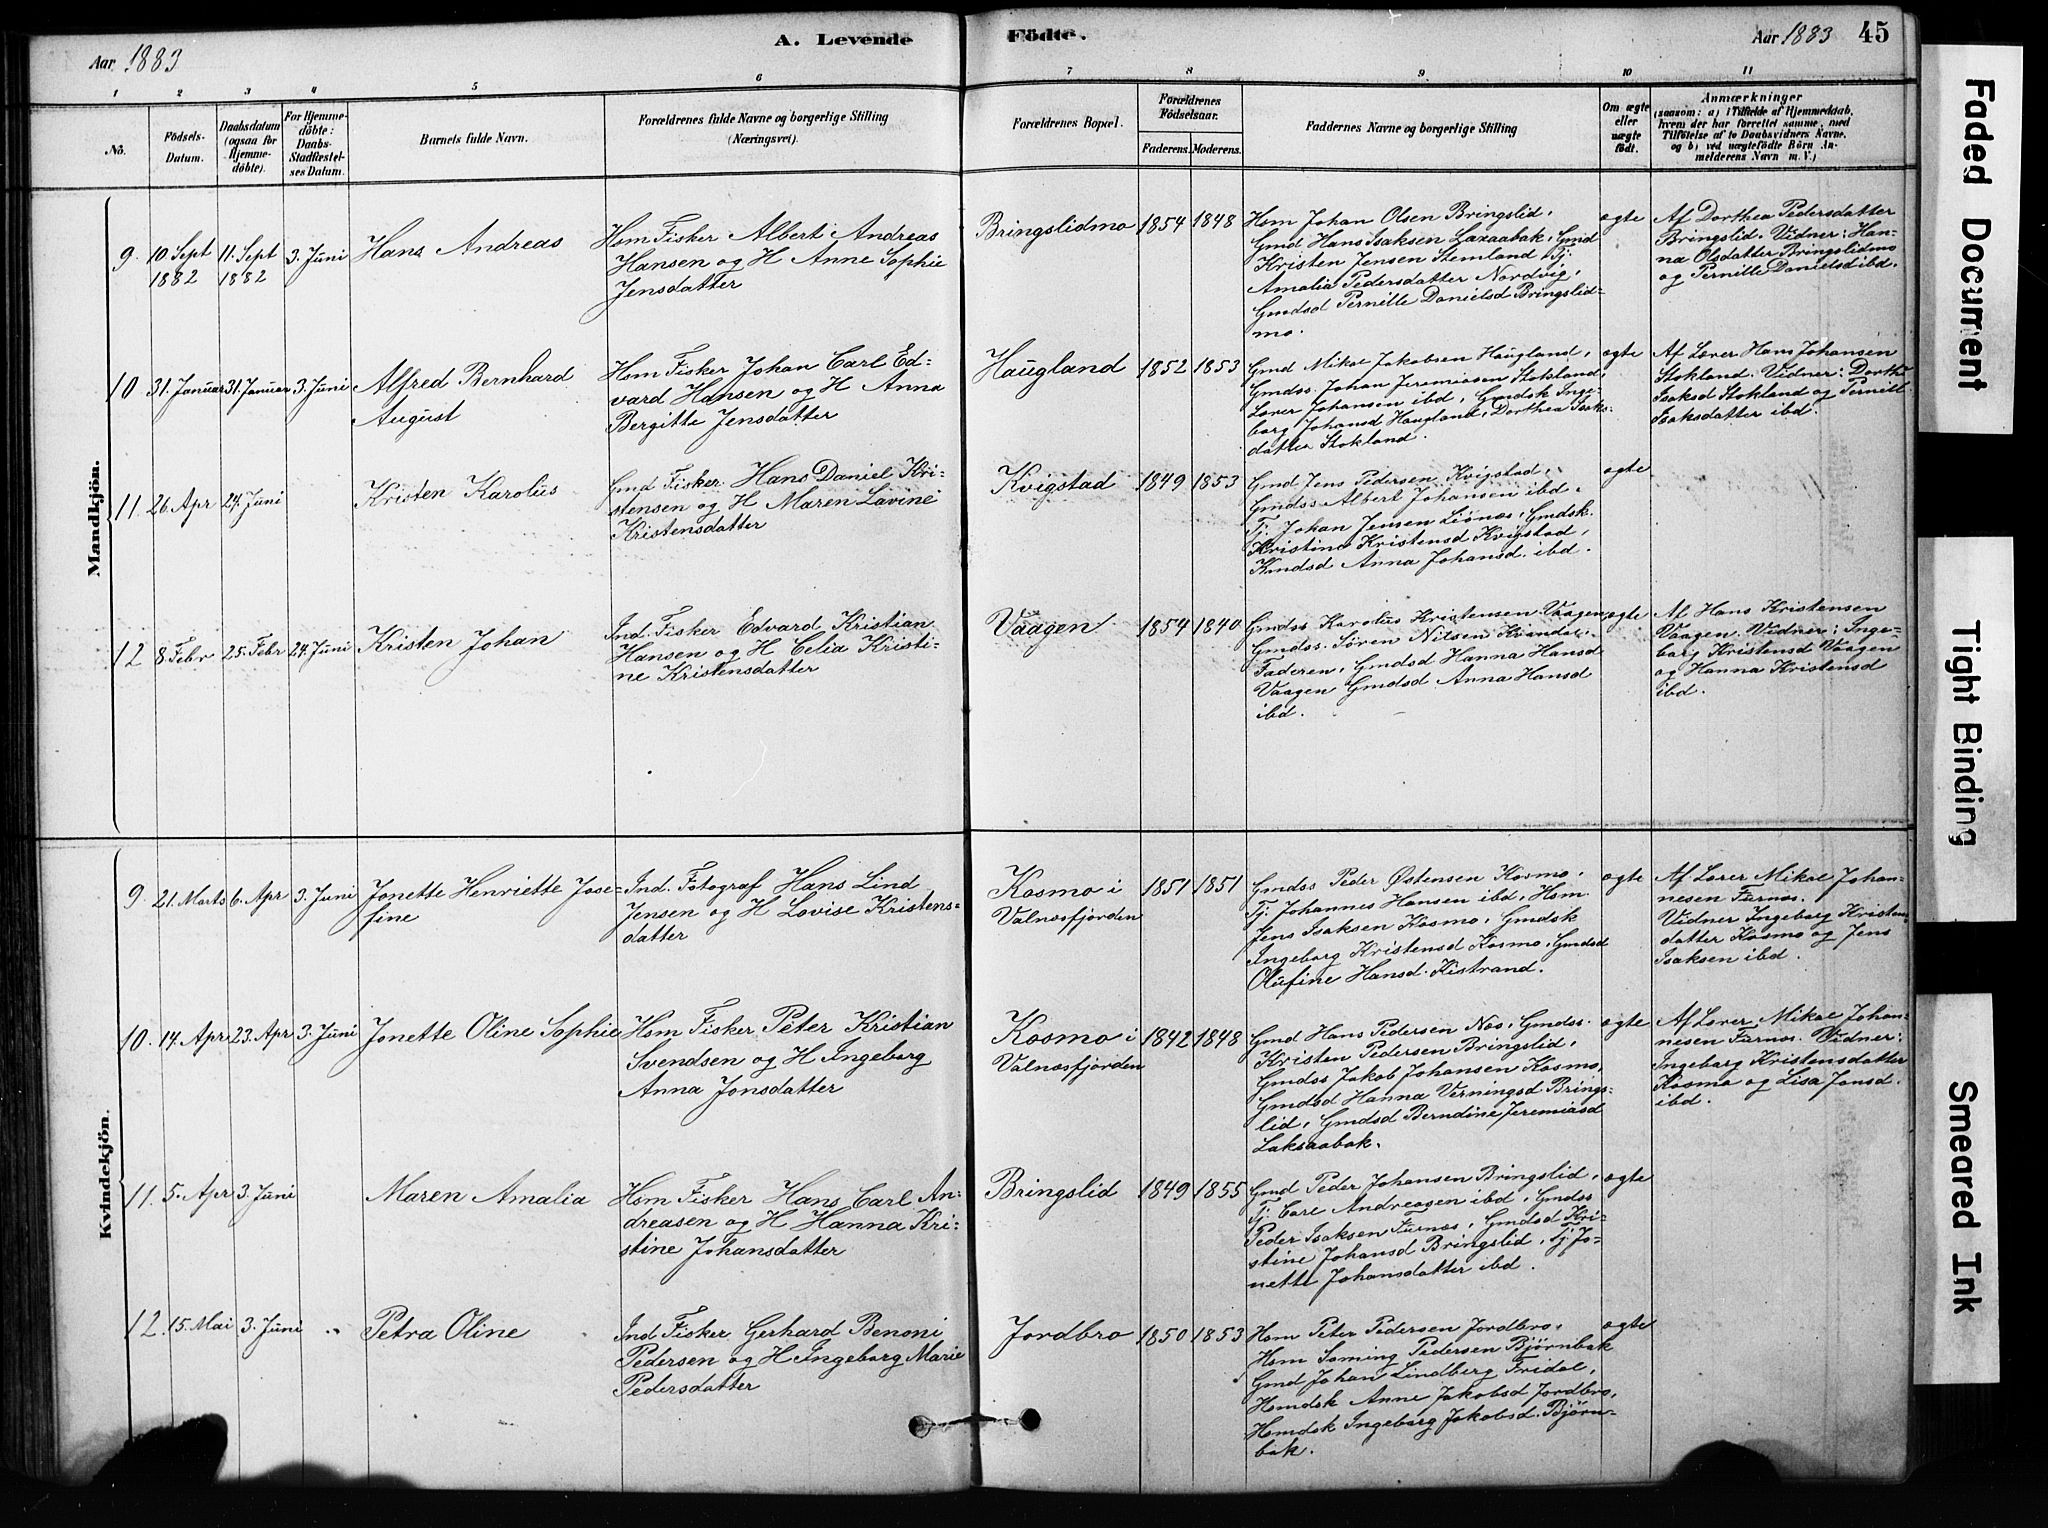 Aar 1883
A. Levende
Födte.
Aar 1883
45
1 2 3 4 5 6 7 8 9 10 11
No.
Födsels-
Datum.
Daabsdatum
(ogsaa for
Hjemme-
döbte).
For Hjemme-
döbte:
Daabs-
Stadfæstel-
ses Datum.
Barnets fulde Navn.
Forældrenes fulde Navne og borgerlige Stilling
(Næringsvei).
Forældrenes Bopæl.
Forældrenes
Födselsaar.
Faderens. Moderens.
Faddernes Navne og borgerlige Stilling
Om ægte
eller
uægte
födt.
Anmærkninger
(saasom: a) i Tilfælde af Hjemmedaab,
hvem der har forrettet samme, med
Tilföielse af to Daabsvidners Navne,
og b) ved uægtefödte Börn An-
melderens Navn m. V.)
Mandkjön.
9. 10. Sept
1882
11. Sept
1882
3. Juni
Hans Andreas
Hsm Fisker Albert Andreas
Hansen og H Anne Sophie
Jensdatter
Bringslidmo
1854 1848
Hsm Johan Olsen Bringslid,
Gmd Hans Isaksen Laxaabak, Gmd
Kristen Jensen Stemland, Tj.
Amalia Pedersdatter Nordvig,
Gmdsd Pernille Danielsd Bringslid-
mo.
ægte
Af Dorthea Pedersdatter
Bringslid. Vidner: Han-
na Olsdatter Bringslidmo
og Pernille Danielsd ibd.
10 31. Januar 31. Januar 3. Juni
Alfred Bernhard
August
Hsm Fisker Johan Carl Ed-
vard Hansen og H Anna
Bergitte Jensdatter
Haugland
1852 1853
Gmd Mikal Jakobsen Haugland,
Gmdss. Johan Jeremiasen Stokland,
Lærer Johansen ibd, Gmdsk Inge-
borg Johansd Haugland, Dorthea Isaks-
datter Stokland.
ægte
Af Lærer Hans Johansen
Stokland. Vidner: Dorthe
Isaksd Stokland og Pernill
Isaksdatter ibd.
11. 26. Apr 24. Juni
Kristen Karolius
Gmd Fisker Hans Daniel Kri-
stensen og H Maren Lavine
Kristensdatter
Kvigstad
1849 1853
Gmd Jens Pedersen Kvigstad,
Gmdss Albert Johansen ibd,
Tj. Johan Jensen Leönes, Gmdsk.
Kristine Kristensd Kvigstad,
Gmdsd Anna Johansd. ibd.
ægte
12 8. Febr 25. Febr 24. Juni
Kristen Johan
Ind. Fisker Edvard Kristian
Hansen og H Celia Kristi-
ne Kristensdatter
Vaagen
1854 1840
Gmdss Karolius Kristensen Vaagen,
Gmdss. Sören Nilsen
Faderen, Gmdsd Hanna Hansd
Vaagen Gmdsd Anna Hansd
ibd.
ægte
Af Hans Kristensen
Vaagen. Vidner: Inge-
borg Kristensd Vaagen
og Hanna Kristensd
ibd.
Kvindekjön.
9. 21. Marts 6. Apr 3. Juni
Jonette Henriette Jose-
fine
Ind. Fotograf Hans Lind
Jensen og H Lovise Kristens-
datter
Kosmo i
Valnæsfjorden
1851 1851
Gmdss Peder Østensen Kosmo,
Tj. Johannes Hansen ibd, Hsm
Jens Isaksen Kosmo, Gmdsk
Ingeborg Kristensd Kosmo, Gmdsd
Olufine Hansd. Kistrand.
ægte
Af Lærer Mikal Johan-
nesen Furnæs.
Vidner Ingeborg Kristens-
datter Kosmo og Jens
Isaksen ibd.
10. 14. Apr 23. Apr 3. Juni
Jonette Oline Sophie
Hsm Fisker Peter Kristian
Svendsen og H Ingeborg
Anna Jonsdatter
Kosmo i
Valnæsfjorden
1842 1848
Gmd Hans Pedersen Næs, Gmdss.
Kristen Pedersen Bringslid,
Gmdss Jakob Johansen Kosmo,
Gmdsd Hanna Verningsd Brings-
lid, Gmdsd Berndine Jeremiasd
Laksaabak.
ægte
Af Lærer Mikal Johan-
nesen Furnæs. Vidner:
Ingeborg Kristensdatter
Kosmo og Lisa Jonsd.
ibd.
11. 5. Apr 3. Juni
Maren Amalia
Hsm Fisker Hans Carl An-
dreasen og H Hanna Kri-
stine Johansdatter
Bringslid
1849 1855
Gmd Peder Johansen Bringslid,
Tj. Carl Andreasen ibd, Gmdss
Peder Isaksen Furnæs, Gmdsd Kri-
stine Johansd Bringslid, Tj Jo-
nette Johansdatter ibd.
ægte
12. 15. Mai 3. Juni "
Petra Oline
Ind Fisker Gerhard Benoni
Pedersen og H Ingeborg Marie
Pedersdatter
Jordbro
1850 1853
Hsm Peter Pedersen Jordbro,
Hsm Soming Pedersen Bjørnbak
Gmd Johan Lindberg Fridal,
Hsmdsk Anne Jakobsd Jordbro,
Hsmdsk Ingeborg Jakobsd. Bjørn-
bak.
ægte
Faded Document
Tight Binding
Smeared Ink